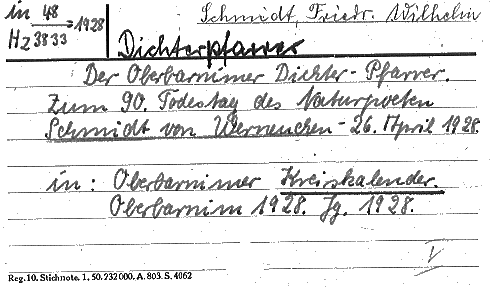 in 48 → 1928
Hz 3833
Schmidt, Friedr. Wilhelm
Dichterpfarrer
Der Oberbarnimer Dichter-Pfarrer.
Zum 90. Todestag des Naturpoeten
Schmidt von Werneuchen - 26. April 1928.
in: Oberbarnimer Kreiskalender.
Oberbarnim 1928. Jg. 1928.
V
Reg. 10. Stichnote. 1. 50. 232000. A. 803. S. 4062